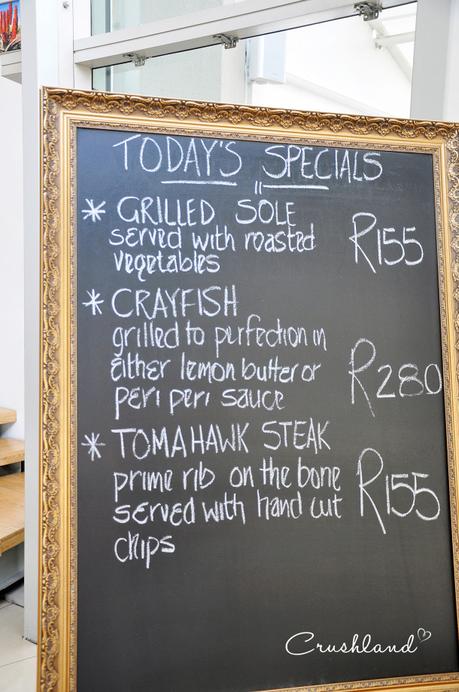 TODAY'S SPECIALS
* GRILLED SOLE
served with roasted R155
vegetables
* CRAYFISH
grilled to perfection in
either lemon butter or R280
peri peri sauce
* TOMAHAWK STEAK
prime rib on the bone R155
served with hand cut
chips
Crushland